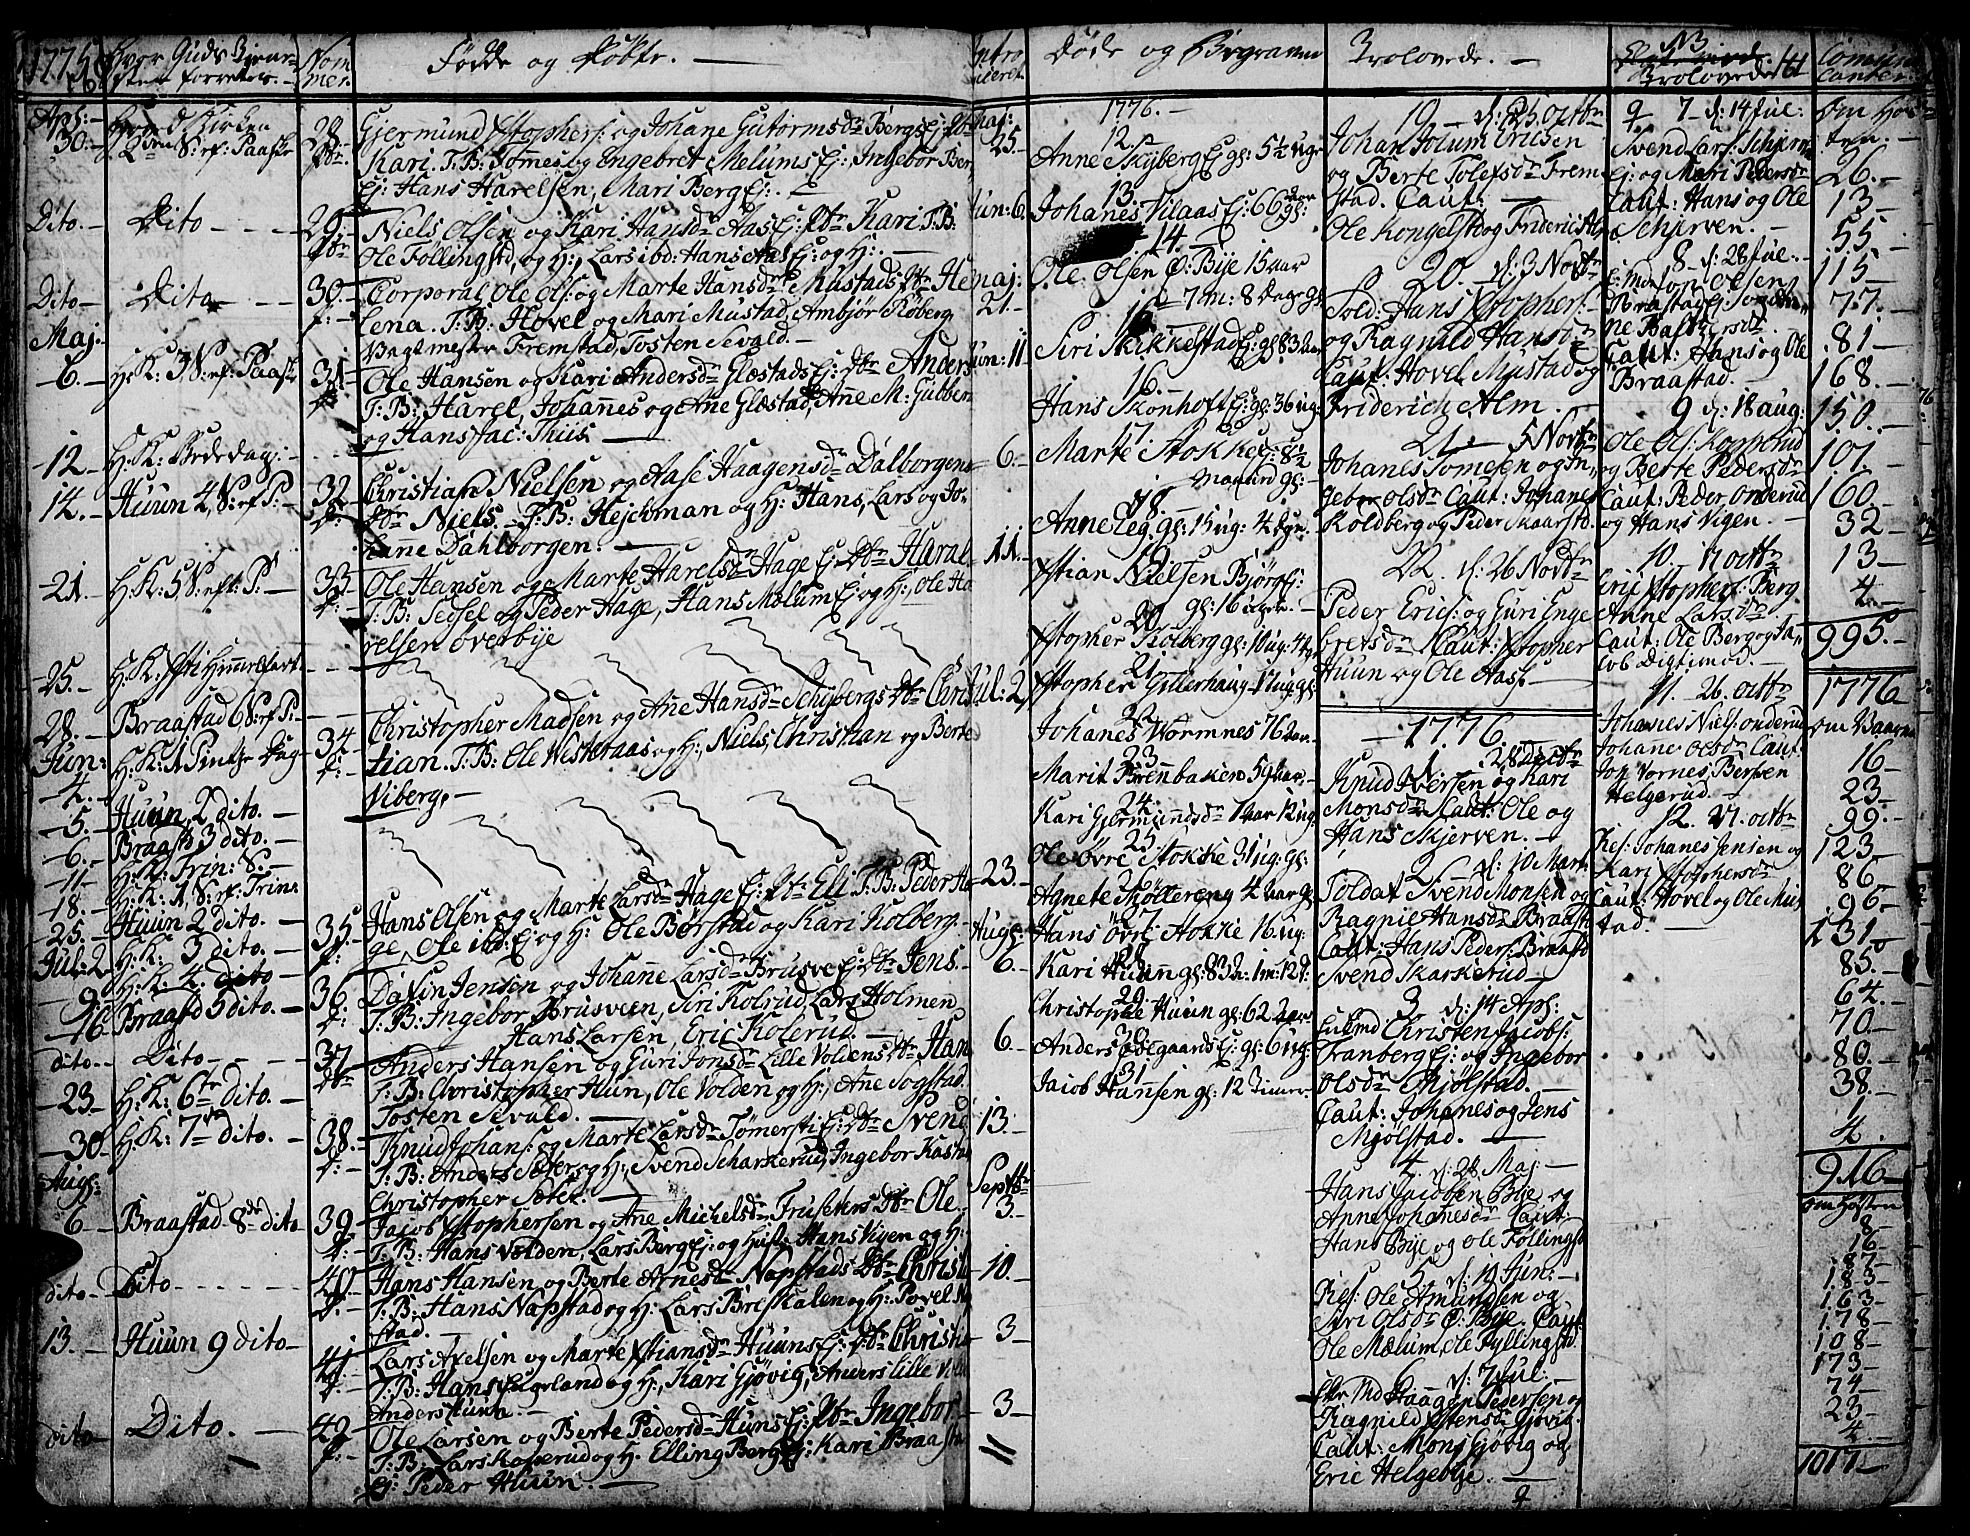 1775
76
Hvor Guds Tienesten forrettes.
Nommer.
Fødde og Døbte.
Aps:
30.
Hoved Kirken
2den S: ef: Paaske
28
Giermund Stophers: og Johane Gutormsdr Bergs Ej: Dbr
Kari. T: B: Tomes og Engebret Melums Ej: Ingebor Ber,
Ej: Hans Harelsen, Mari Berg Ej:
Dito.
Dito
29
Niels Olsen og Kari Hansdr Aas Ej: Dbr Kari T: B:
Ole Föllingstd, og H:, Lars ibd: Hans Aas Ej: og H:
Dito
Dito
30
Corporal Ole Ols: og Marte Hansdr Mustads Dbr He
lena. T: B: Hovel og Mari Mustad, Ambjør Röberg
Vagtmester Fremstad, Tosten Sevald.
Maj.
6.
H: K: 3 S: ef: Paaske
31
Ole Hansen og Kari Andersdr Glæstads Ej: Dbr Anders
T: B: Harel, Johanes og Ane Glæstad, Ane M: Gubber
og Hans Jac: Thiis
12
H: K: Bededag:
14.
Huun 4 S: ef P:
32
Christian Nielsen og Aase Haagensdr Dalborgens
Dbr Niels. T: B: Hejchman og H: Hans, Lars og Jo,
hanne Dahlborgen.
21.
H: K: 5 S: eft: P:
33
Ole Hansen og Marte Harelsdr Hage Ej: Dbr Haral
T: B: Sedsel og Peder Hage, Hans Mælum Ej og H: Ole Ha
relsen överbÿe
25.
H: K: Xsti Himmelfart.
28.
Braastad 6 S: ef P:
34
Christopher Madsen og Ane Hansdr Schÿbergs Dbr Chris
tian. T: B: Ole Westeraas og H: Niels, Christian og Berte
Viberg.
Jun:
4.
H: K: 1 Pintze Dag
5.
Huun 2 dito.
6.
Braastd 3 dito.
11
H: K: Trin: S:
18.
H: K: 1 S: ef: Trin:
25.
Huun 2 dito.
35
Hans Olsen og Marte Larsdr Hage Ej: Dbr Eli T: B: Peder Ha
ge, Ole ibd: Ej og H: Ole Børstad og Kari Kolberg.
Jul: 2
H: K: 3 dito.
9
H: K. 4. dito
16
Braastd 5 dito.
36
Davin Jensen og Johanne Larsdr Brusve Ej: Dbr Jens.
T: B: Ingebor Brusveen, Siri Kolsrud Lars Holmen
Hans Larsen, Eric Kolsrud.
dito.
Dito
37
Anders Hansen og Guri Jonsdr Lille Voldens Dbr Hans
T: B: Christopher Hun, Ole Volden og H:, Ane Sogstad
Tosten Sevald.
23
H: K: 6te dito.
30
H: K: 7de dito.
38
Knud Johans: og Marte Larsdr Tomersti Ej: Dbr Svend
T: B: Anders Sæter og H: Svend Scharkerud, Ingebor Kasta
Christopher Sæter.
Augs:
6
Braastad 8de dito
39
Jacob Stophersen og Ane Michelsdr Fruseters Dbr Ole
T: B: Hans Volden, Lars Berg Ej: og Hust: Hans Vigen og H:
dito
Dito
40
Hans Hansen og Berte Arnesdr Nøpstads Dbr Christi
T: B: Hans Nøpstad og H: Lars Briskalen og H: Povel Nøp
stad.
13.
Huun 9 dito
41
Lars Axelsen og Marte Xstiansdr Huuns Ej: Dbr Christia
T: B: Hans og H:, Kari Gjövig, Anders Lille Volden
Anders Huun.
dito
Dito.
42
Ole Larsen og Berte Pedersdr Huns Ej: Dbr Ingebor
T: B: Lars Kopperud og H: Elling Berg Ej: Kari Braasta
Ej: Peder Huun.
Intro
duceret
Maj:
25.
Jun: 6.
Maj:
21.
Jun: 11
6.
11.
Jul: 2
23.
Augs:
6.
6.
13.
Septbr
3.
10.
3
3
Døde og Begravne
1776.
12.
Anne Skÿberg Ej gl: 5½ uge
13.
Johanes Vilaas Ej: 66 aar gl:
14.
Ole Olsen Ø: Bÿe 15 aar
7 m: 8 dage gl:
15
Siri Skikkelstad Ej: gl: 83 aar
16.
Hans Skonhoft Ej: gl: 36 ug:
17.
Marte Stokke Ej: 8½
Maaned gl:
18.
Anne Eeg. gl: 15 ug: 4 dage.
19
Xstian Nielsen Bjørg Ej:
gl: 16 uger.
20
Xstopher Kolberg gl: 10 ug: 4
21
Xstopher Gillerhaug 17 ug: gl:
22
Johanes Wormnes 76 aar.
23
Marit Brenbakken 59 aar.
24
Kari Giermundsdr 1 aar 12 ug:
25
Ole øvre Stokke 31 ug: gl:
26
Agnete Möllereng 42 aar gl
27
Hans övre Stokke 16 ug:
28
Kari Huun gl: 83 a: 1 m: 12 d:
29
Christophe Huun gl: 62 aar
30
Anders Ødegaards Ej: gl: 6 ug:
31
Jacob Hansen gl: 12 Timer.
Trolovede.
19 d: 25 Octbr
Johan Jolum Ericsen
og Berte Tolefsdr Frem
stad. Caut:
Ole Kongelstd og Frideric Alm
20. d: 3 Novbr
Sold: Hans Xstophers:
og Ragnild Hansdr
Caut: Hovel Mustad og
Friderich Alm.
21 5 Novbr
Johanes Tomesen og In,
gebor Olsdr Caut: Johanes
Koldberg og Peder Skaarstd.
22. d: 26 Novbr
Peder Erics: og Guri Enge
bretsdr Caut: Xstopher
Huun og Ole Aas.
1776
1. 28 Decbr
Knud Iversen og Kari
Monsdr Caut: Ole og
Hans Skjerven.
2 d: 10 Mart:
Soldat Svend Monsen og
Ragnie Hansdr Braast
Caut: Hans Peders: Braastd
Svend Skarkerud
3 d: 14 Aps:
Christen Jacobs:
Tranberg Ej: og Ingebor
Olsdr Mjölstad.
Caut: Johanes og Jens
Mjölstad.
4 d: 28 Maj.
Hans Jacobsen Bÿe og
Anne Johanesdr Caut:
Hans Bÿe og Ole Föllingstd
5 d: 10 Jun:
Res: Ole Amundsen og
Siri Olsdr Ø: Bÿe. Caut
Ole Mælum, Ole Fÿllingstd.
6 d: 7 Jul.
Haagen Pedersen og
Ragnild Ostensdr Gjövig.
Caut: Mons Gjövig og
Eric Helgebÿe.
NB
Trolovede
7 d: 14 Jul:
Svend Lars: Schjerven
Ej: og Mari Pedersdr
Caut: Hans og Ole
Schjerven.
8 d: 28 Jul.
Olsen
Braastad Ej
ne Baltzersdr
Caut: Hans og Ole
Braastad.
9 d: 18 aug:
Ole Ols: Kopperud
og Berte Pedersdr
Caut: Peder onderud
og Hans Vigen.
10. 17 octbr
Eric Stophers: Berg
Anne Larsdr
Caut: Ole Berg og Ja,
cob Digtimod.
11. 26. octbr
Johanes Niels: onderud
Johane Olsdr Caut:
Jon Vornes, Bersven
Helgerud.
12. 27. octbr
Res: Johanes Jensen og
Kari Xstophersdr
Caut: Hovel og Ole Mus,
tad.
Comuni
canter.
Om Høs
ten.
26.
13
55.
115
77.
81
168.
150.
107
160.
32
13
4
995.
1776
om Vaaren
16
23
99.
123
86
96
131
85.
64.
70.
80.
38.
1
4.
916
om Høsten
8
16
87
183
163
178
108
173
74
23
4.
1017